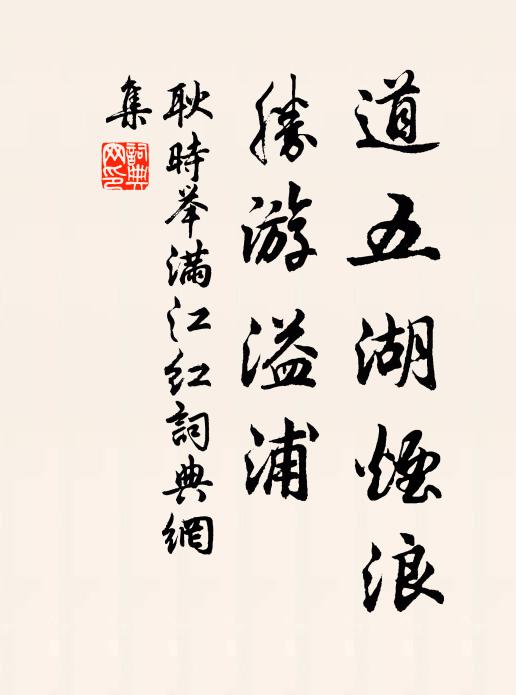 道五湖煙浪
勝游溢浦
耿時举滿江红詞典網
集
詞典网印